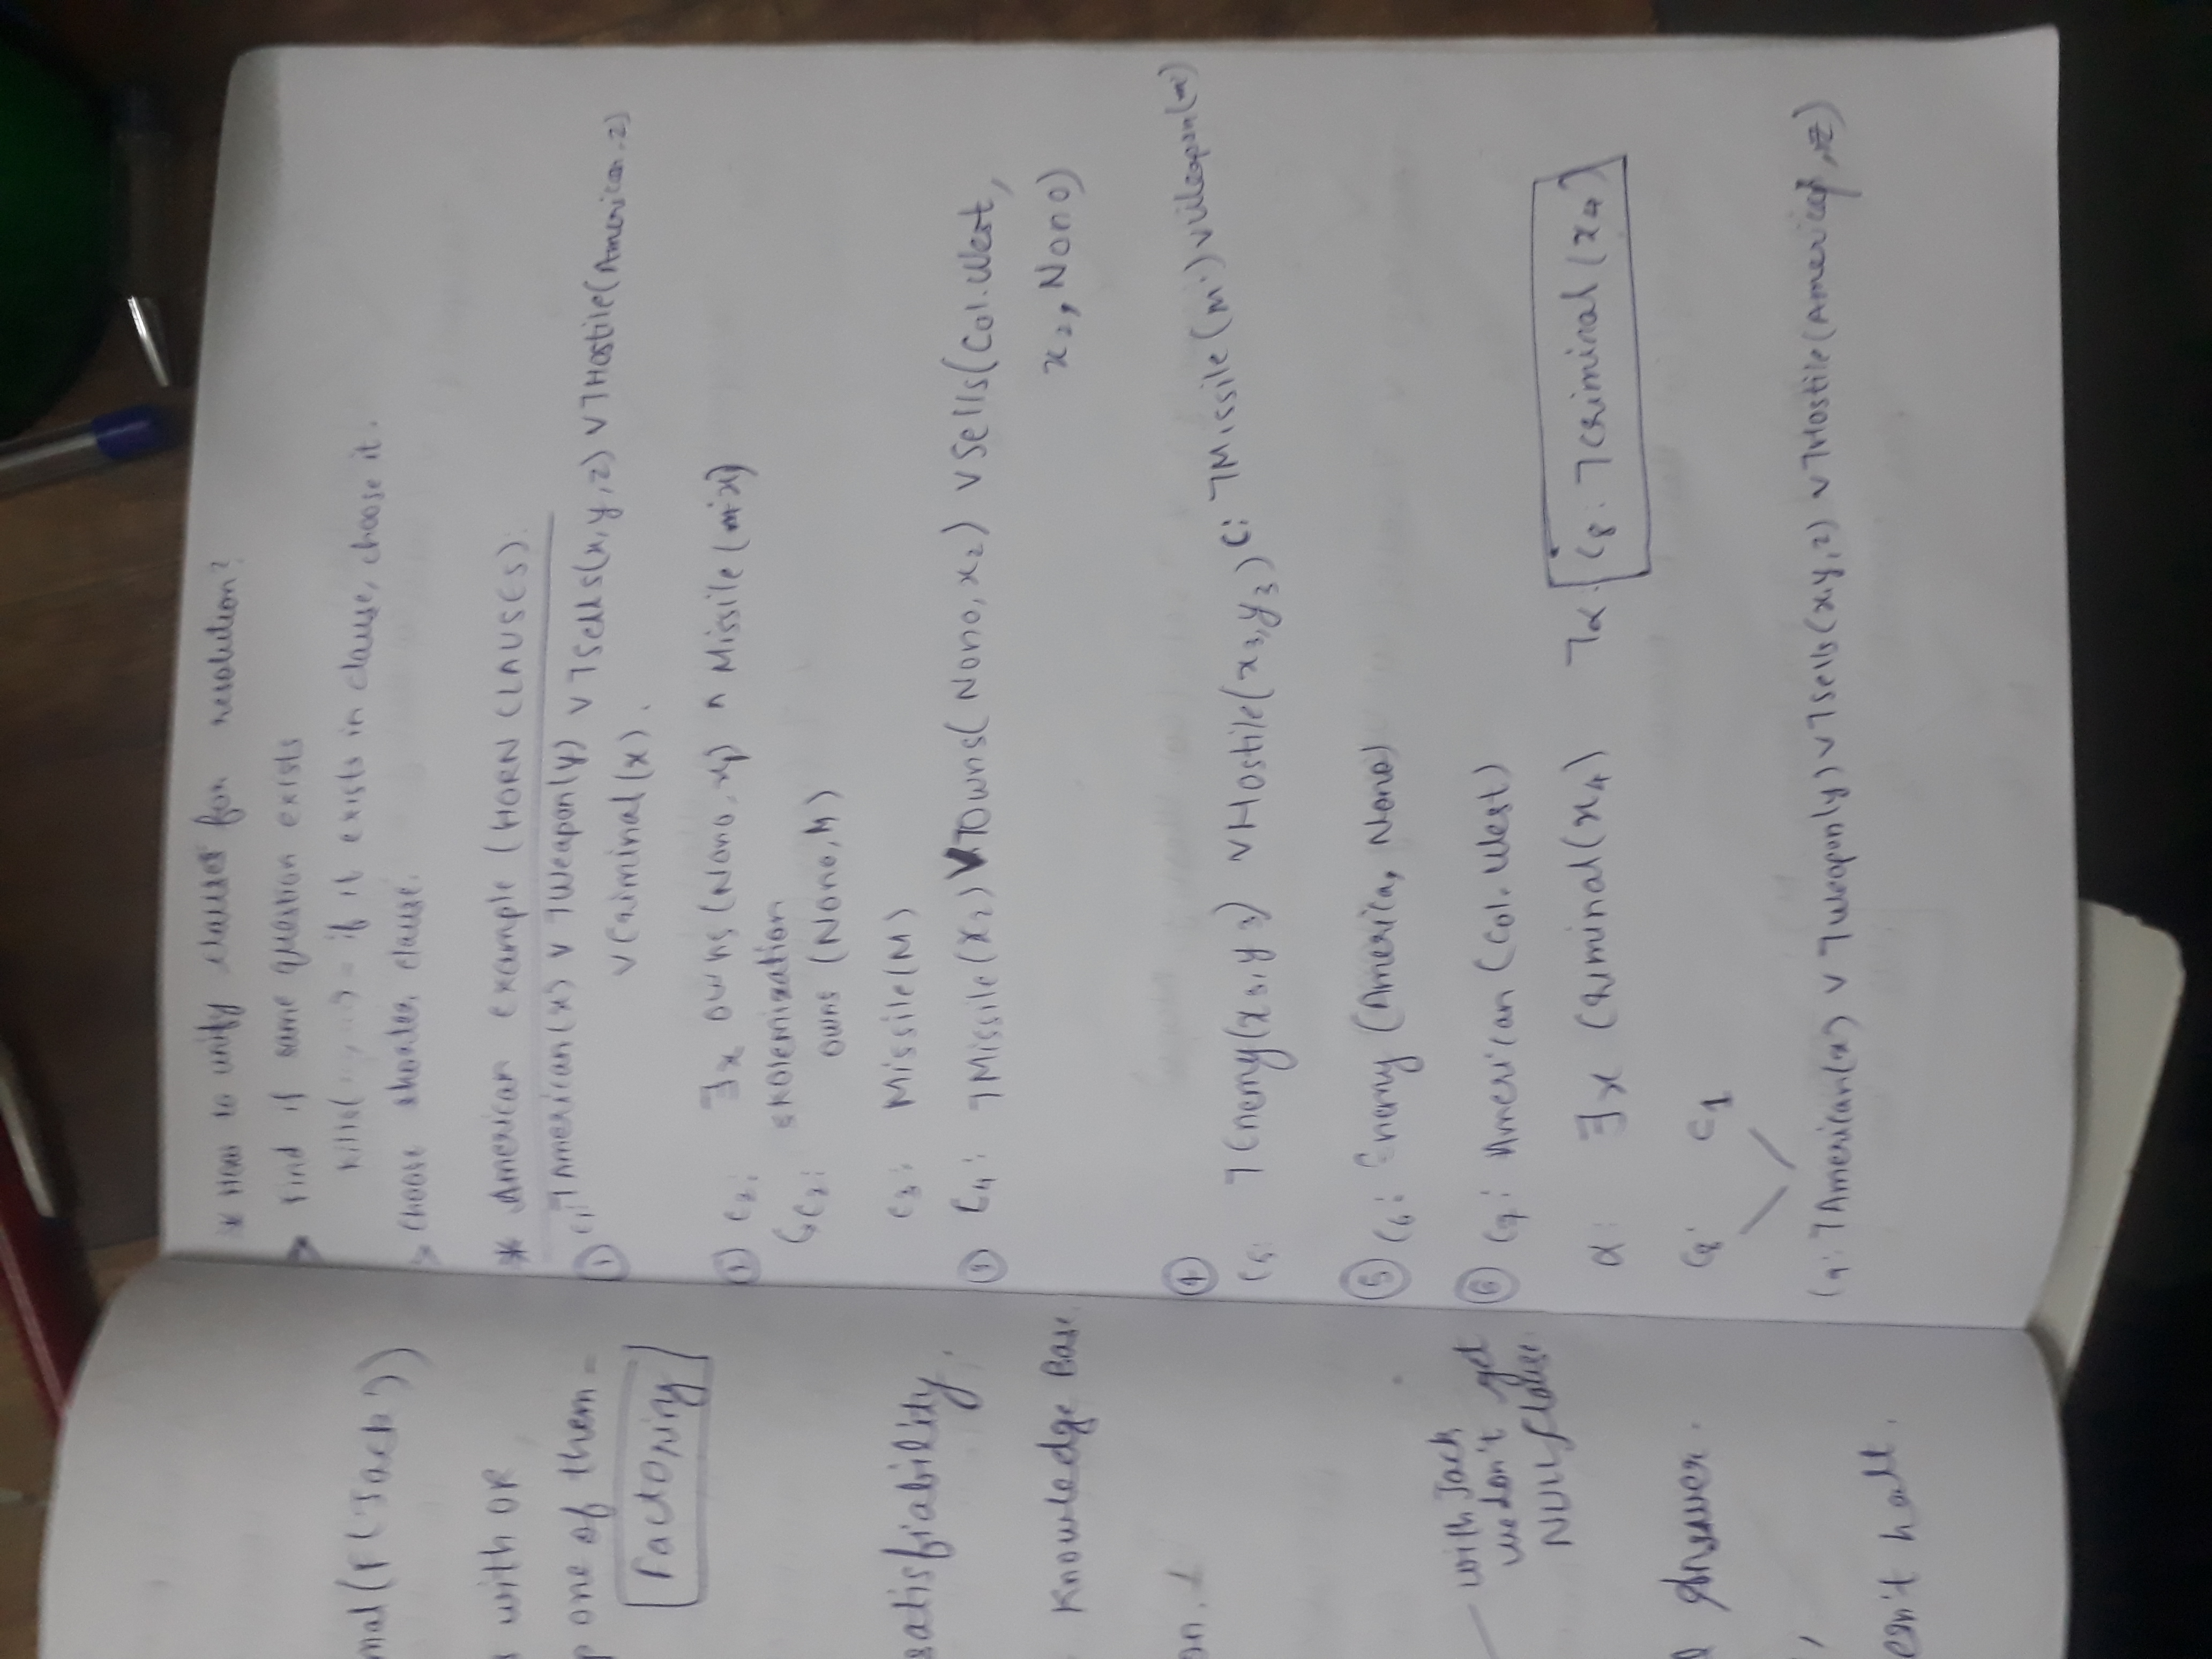 mal(F(Jack))
s with OR
p one of them -
Factoring
satisfiability.
Knowledge Base
on. 1
with Jack
we don't get
NULL clause.
Answer.
esn't halt.
* How to unify clauses for resolution?
> Find if same question exists
Kills( , ) - if it exists in clause, choose it.
> Choose shorter clause.
* American Example (HORN CLAUSES).
① C1: ¬American(x) ∨ ¬Weapon(y) ∨ ¬Sells(x,y,z) ∨ ¬Hostile(American,z)
∨ Criminal(x).
C2: ∃x owns(Nono,x) ∧ Missile(x)
↳C2: skolemization
owns (Nono,M)
C3: Missile(M)
③ C4: ¬Missile(x2) ∨ ¬Owns(Nono,x2) ∨ Sells(Col.West,
x2, Nono)
④
C5: ¬Enemy(x3,y3) ∨ Hostile(x3,y3) C: ¬Missile(m') ∨ Weapon(m')
⑤ C6: Enemy (America, Nono)
⑥ C7: American (Col. West)
α: ∃x Criminal(x4) ¬α: C8: ¬Criminal(x4)
C8 C1
C9: ¬American(x) ∨ ¬Weapon(y) ∨ ¬Sells(x,y,z) ∨ ¬Hostile(America,z)